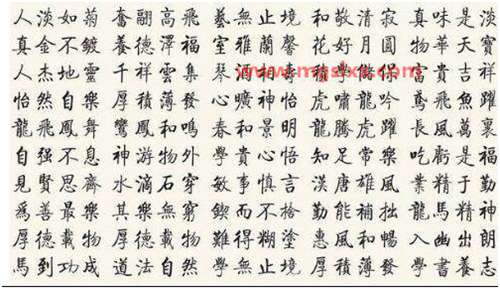 人淡如菊 奮翮高飛 藝無止境 和敬清寂 真味是淡
真金不鍍 養德澤福 室雅蘭馨 花好月圓 物華天寶
人杰地靈 千祥雲集 琴心 富貴吉祥
www.mgslxx.com
怡然自樂 厚積薄發 心曠神怡 虎嘯龍吟 鳶飛魚躍
龍飛鳳舞 鸞鳳和鳴 春和景明 龍騰虎躍 長風萬裏
自强不息 神游物外 學貴心悟 知足常樂 吃虧是福
見賢思齊 水滴石穿 敏事慎言 漢唐雄風 業精于勤
爲善最樂 其樂無窮 鍥而不捨 勤能補拙 龍馬精神
厚德載物 厚德載物 難得糊塗 惠風和暢 入幽出朗
馬到功成 道法自然 學無止境 厚積薄發 學書養志